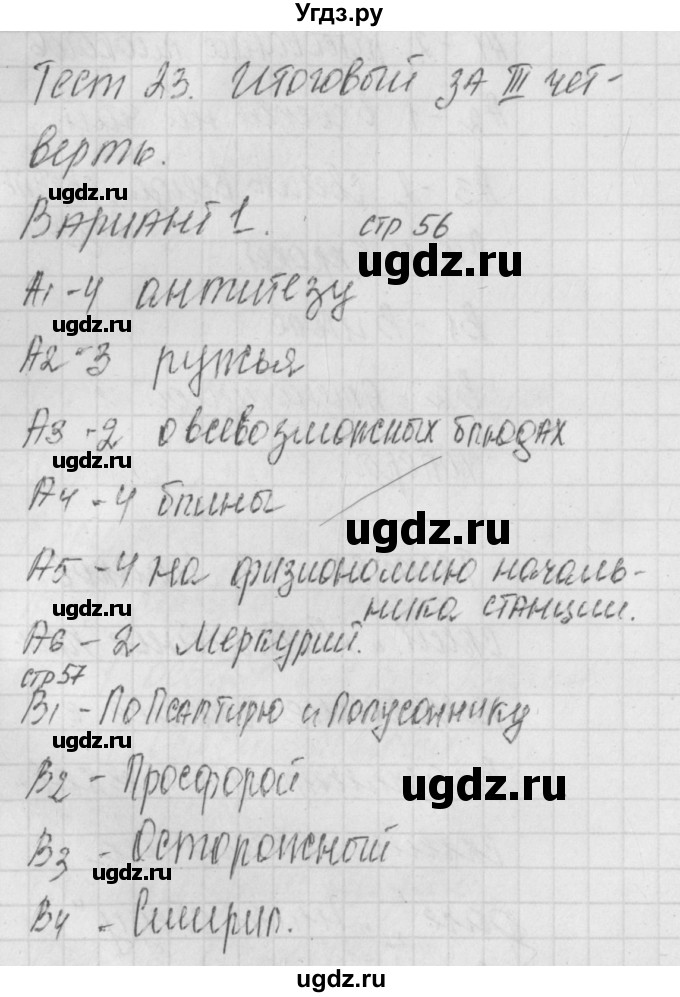 Угдз.ру
Тест 23. Итоговый за III чет-
верть.
ugdz.ru
Вариант 1. стр 56
ugdz.ru
А1 - 4 антитезу
ugdz.ru
А2 - 3 ружья
А3 - 2 о всевозможных блюдах
ugdz.ru
А4 - 4 блины
ugdz.ru
А5 - 4 на физиономию началь-
ника станции.
ugdz.ru
А6 - 2 Меркурий.
стр 57
В1 - По Псалтирю и Полусоннику
ugdz.ru
В2 - Просфорой
ugdz.ru
В3 - Осторожный
ugdz.ru
В4 - Смирил.
ugdz.ru